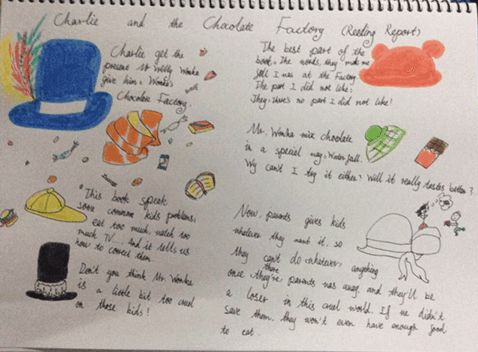 Charlie and the Chocolate Factory (Reading Report)
Charlie get the
present Mr Willy Wonka
give him: Wonka's
Chocolate Factory.
"This book speak
some common kids problems:
eat too much, watch too
much TV... And it tells us
how to correct them.
Don't you think Mr. Wonka
is a little bit too cruel
on those kids!
The best part of the
book: The words, they make me
fell I was at the Factory.
The part I did not like:
They there's no part I did not like!
Mr. Wonka mix chocolate
in a special way: Water fall.
Wy can't I try it either? Will it really tastes better?
Now, parents gives kids
whatever they want it, so
they can't do whatever, anything
once they're parents was away, and they'll be
a loser in this cruel world. If we didn't
save them, they won't even have enough good
to eat.